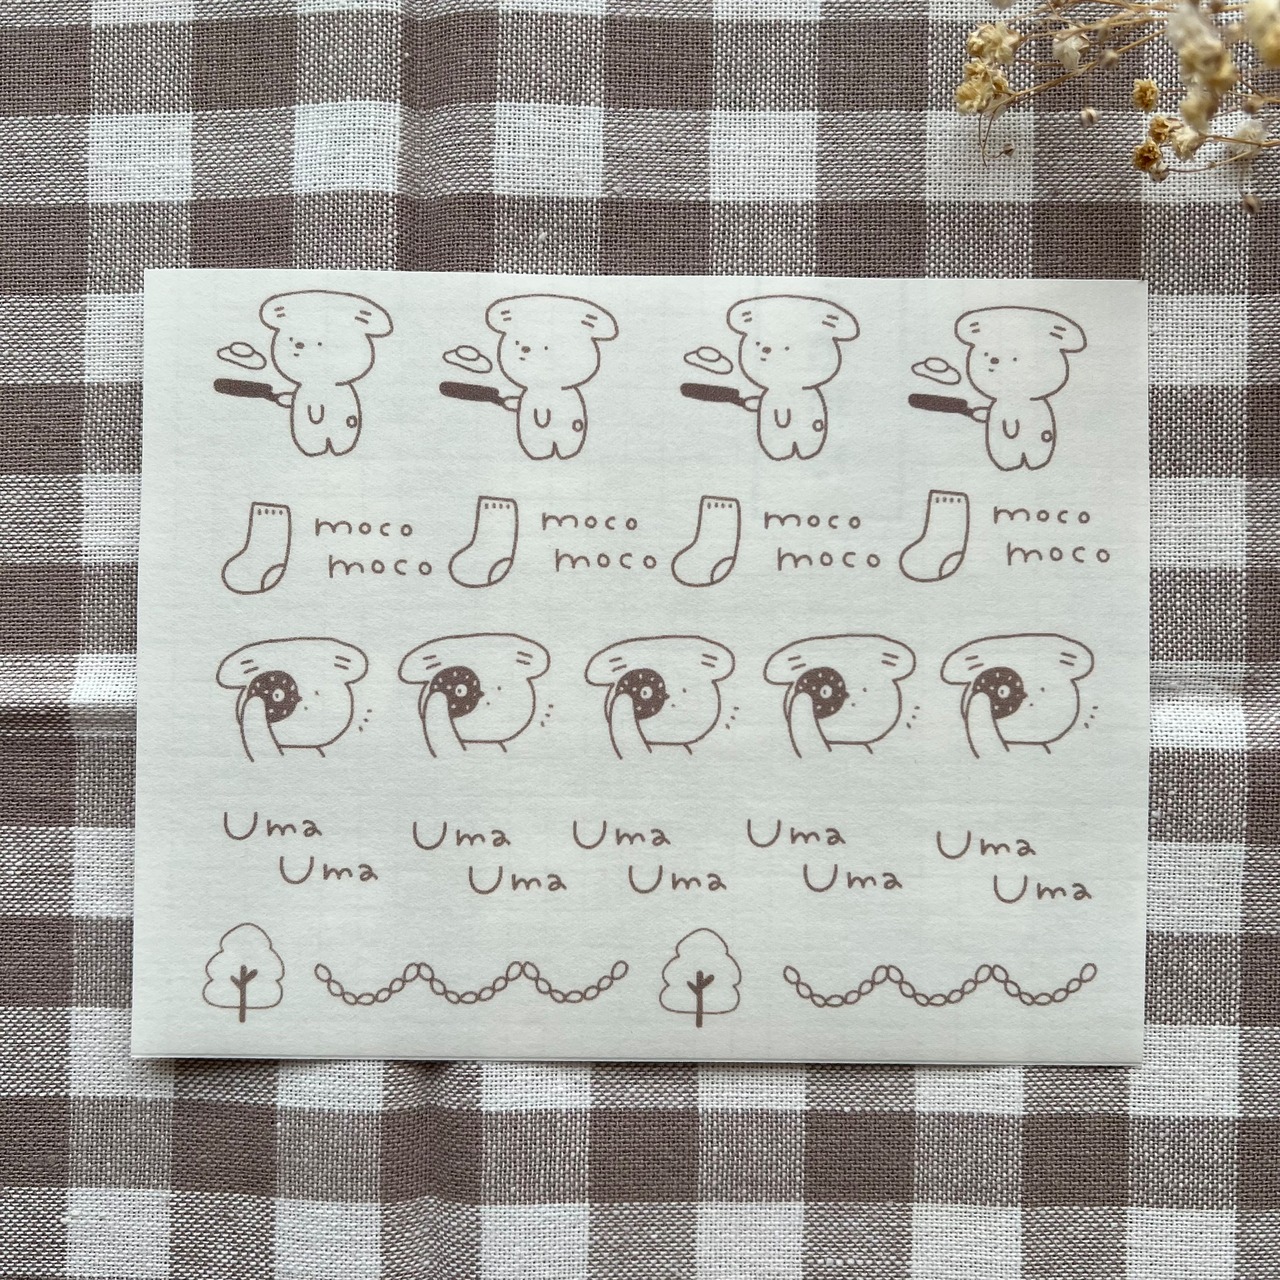 moco moco moco moco
moco moco moco moco
Uma Uma Uma Uma Uma
Uma Uma Uma Uma Uma